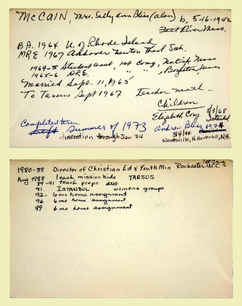 McCAIN, Mrs. Sally Ann Bliss (Alan) b. 5-16-1942
Fall River, Mass.
B.A. 1964 U. of Rhode Island
MRE 1967 Andover Newton Theol. Sch.
1964-5 Student asst, 1st Cong, Natick Mass
1965-6 DRE, " , Boylston Mass
"Married Sept. 11, 1965"
To Tarsus Sept 1967 Teacher
Children
Elizabeth Cory
Completed term Summer of 1973
Andrew Bliss
1980-88 Director of Christian Ed & Youth Min Rochester
Aug 1988 teach mission kids TARSUS
89-91 teach preps
91 ISTANBUL womens groups
92- 6 mo home assignment
96 6 mo home assignment
99 6 mo home assignment